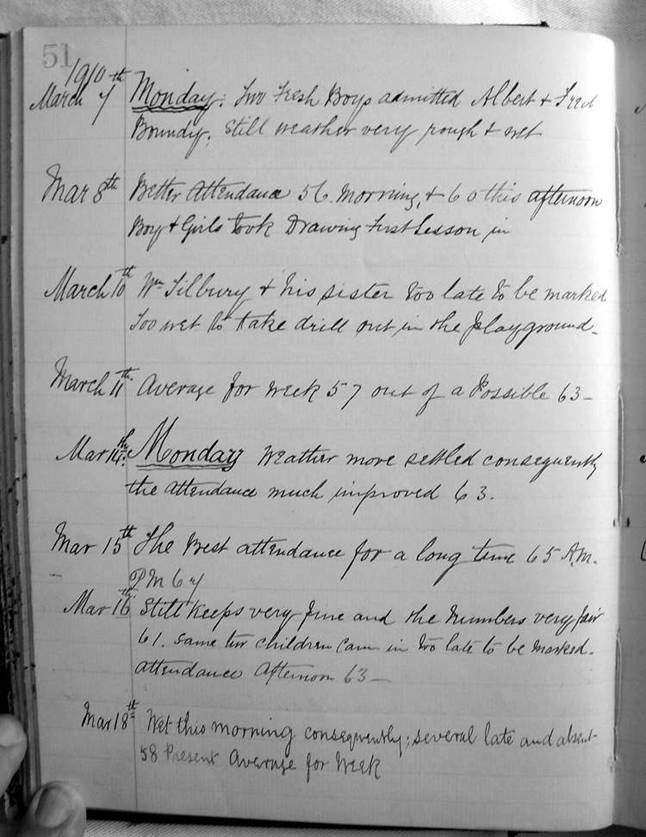 51
1910
March 7th Monday. Two Fresh Boys admitted Albert & Fred
Boundy. Still weather very rough & wet
Mar 8th Better Attendance 56 Morning, & 60 this afternoon
Boy & Girls took Drawing First Lesson in
March 10th Wm Tilbury & his sister too late to be marked
Too wet to take drill out in the playground.
March 11th Average for week 57 out of a Possible 63 -
Mar 14th. Monday Weather more settled consequently
the attendance much improved 63.
Mar 15th The Best attendance for a long time 65 A.M.
P M 64
Mar 16th Still keeps very fine and the numbers very fair
61. Same two children came in too late to be marked.
Attendance Afternoon 63 -
Mar 18th Wet this morning consequently; several late and absent
58 Present Average for Week